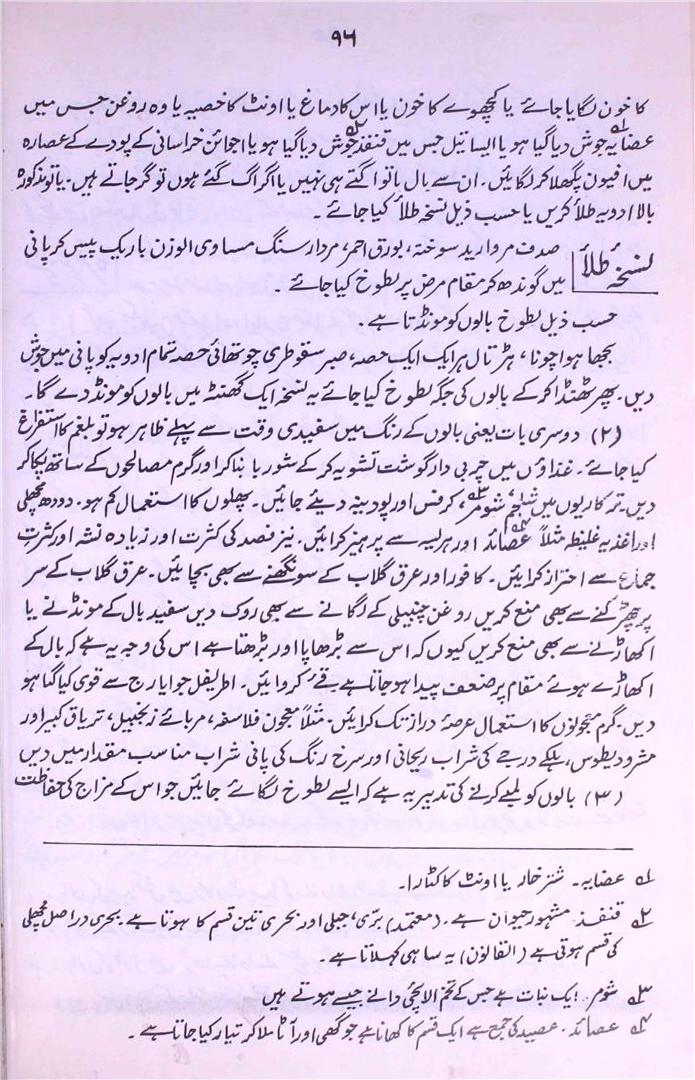 ۹۶
کا خون لگایا جائے یا کچھوے کا خون یا اس کا دماغ یا اونٹ کا خصیہ یا وہ روغن جس میں
عضایہ۱؎ جوش دیا گیا ہو یا ایسا تیل جس میں قنفذ۲؎ جوش دیا گیا ہو یا اجوائن خراسانی کے پودے کے عصارہ
میں افیون پگھلا کر لگائیں۔ ان سے بال یا تو اگتے ہی نہیں یا اگر اگ گئے ہوں تو گر جاتے ہیں۔ یا تو مذکورہ
بالا ادویہ طلاً کریں یا حسب ذیل نسخہ طلاً کیا جائے۔
نسخہ طلاً صدف مروارید سوختہ، بورق احمر، مردار سنگ مساوی الوزن باریک پیس کر پانی
میں گوندھ کر مقام مرض پر لطوخ کیا جائے۔
حسب ذیل لطوخ بالوں کو مونڈتا ہے۔
بجھا ہوا چونا، ہڑتال ہر ایک ایک حصہ، صبر سقوطری چوتھائی حصہ تمام ادویہ کو پانی میں جوش
دیں۔ پھر ٹھنڈا کر کے بالوں کی جگہ لطوخ کیا جائے یہ نسخہ ایک گھنٹہ میں بالوں کو مونڈ دے گا۔
(۲) دوسری بات یعنی بالوں کے رنگ میں سفیدی وقت سے پہلے ظاہر ہو تو بلغم کا استفراغ
کیا جائے۔ غذاؤں میں چربی دار گوشت تشویہ کر کے شوربا بنا کر اور گرم مصالحوں کے ساتھ پکا کر
دیں۔ ترکاریوں میں شلجم، شومر۳؎، کرفس اور پودینہ دیئے جائیں۔ پھلوں کا استعمال کم ہو۔ دودھ مچھلی
اور اغذیہ غلیظہ مثلاً عصائد۴؎ اور ہریسہ سے پرہیز کرائیں۔ نیز فصد کی کثرت اور زیادہ نشہ اور کثرتِ
جماع سے احتراز کرائیں۔ کافور اور عرق گلاب کے سونگھنے سے بھی بچائیں۔ عرق گلاب کے سر
پر چھڑکنے سے بھی منع کریں روغن چنبیلی کے لگانے سے بھی روک دیں سفید بال کے مونڈنے یا
اکھاڑنے سے بھی منع کریں کیوں کہ اس سے بڑھاپا اور بڑھتا ہے اس کی وجہ یہ ہے کہ بال کے
اکھاڑے ہوئے مقام پر ضعف پیدا ہو جاتا ہے قے کروائیں۔ اطریفل جو ایارج سے قوی کیا گیا ہو
دیں۔ گرم معجونوں کا استعمال عرصۂ دراز تک کرائیں۔ مثلاً معجون فلاسفہ، مربائے زنجبیل، تریاق کبیر اور
مثرودیطوس، ہلکے درجے کی شراب ریحانی اور سرخ رنگ کی پانی شراب مناسب مقدار میں دیں
(۳) بالوں کو لمبے کرنے کی تدبیر یہ ہے کہ ایسے لطوخ لگائے جائیں جو اس کے مزاج کی حفاظت
۱؎ عضایہ۔ شتر خار یا اونٹ کا کٹارا۔
۲؎ قنفذ۔ مشہور حیوان ہے۔ (معتمد) برّی، جبلی اور بحری تین قسم کا ہوتا ہے بحری دراصل مچھلی
کی قسم ہوتی ہے (القانون) یہ ساہی کہلاتا ہے۔
۳؎ شومر۔ ایک نبات ہے جس کے تخم الائچی دانے جیسے ہوتے ہیں
۴؎ عصائد۔ عصید کی جمع ہے ایک قسم کا کھانا ہے جو گھی اور آٹا ملا کر تیار کیا جاتا ہے۔